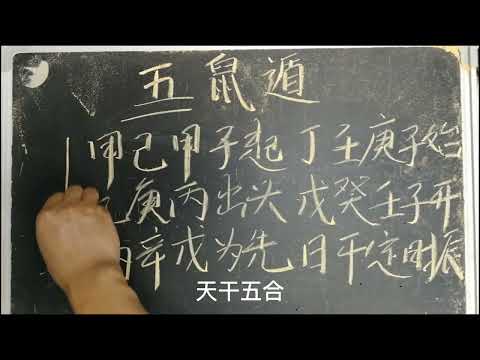 五鼠遁
甲己甲子起丁壬庚子始
庚丙出头戊癸壬子开
辛戊为先日干定时辰
天干五合